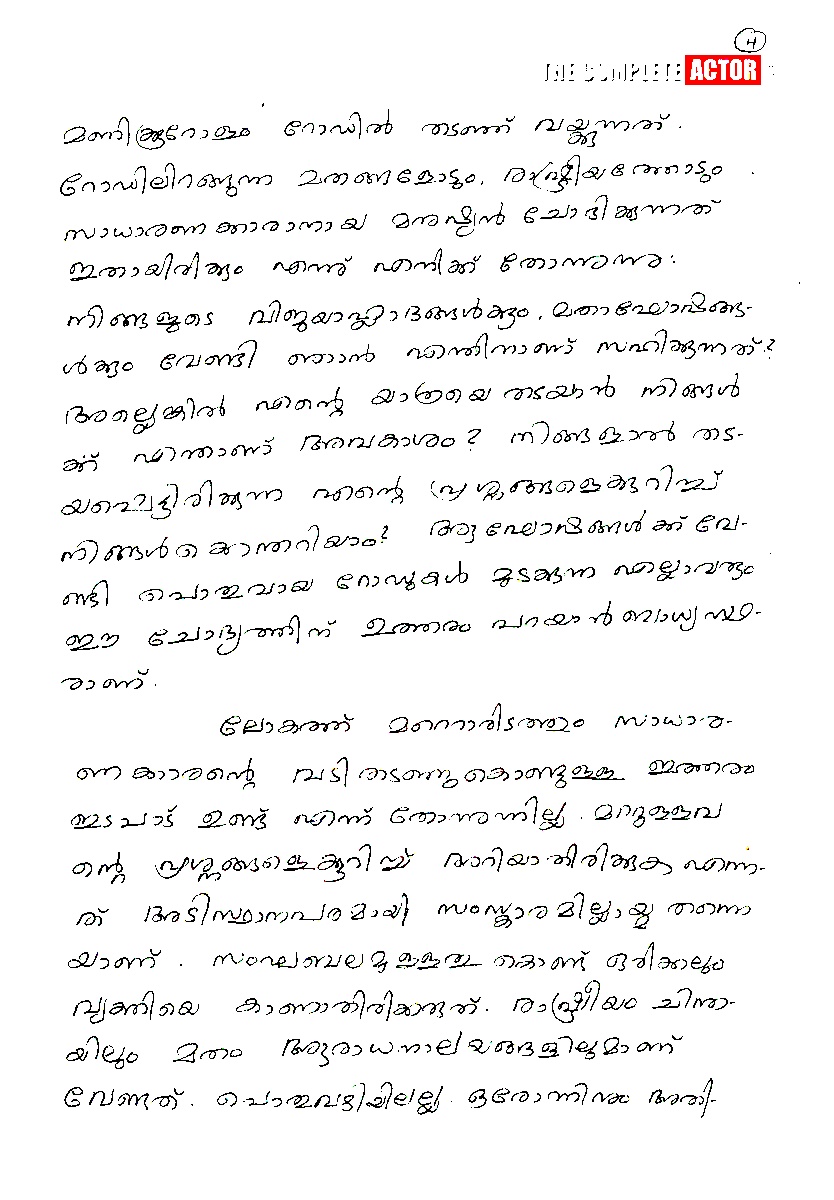 4
THE COMPLETE ACTOR
മണിക്കൂറോളം റോഡിൽ തടഞ്ഞ് വയ്ക്കുന്നത്.
റോഡിലിറങ്ങുന്ന മതങ്ങളോടും, രാഷ്ട്രീയത്തോടും
സാധാരണക്കാരനായ മനുഷ്യൻ ചോദിക്കുന്നത്
ഇതായിരിക്കും എന്ന് എനിക്ക് തോന്നുന്നു:
നിങ്ങളുടെ വിജയാഹ്ലാദങ്ങൾക്കും, മതാഘോഷങ്ങ-
ൾക്കും വേണ്ടി ഞാൻ എന്തിനാണ് സഹിക്കുന്നത്?
അല്ലെങ്കിൽ എന്റെ യാത്രയെ തടയാൻ നിങ്ങൾ
ക്ക് എന്താണ് അവകാശം? നിങ്ങളാൽ തട-
യപ്പെട്ടിരിക്കുന്ന എന്റെ പ്രശ്നങ്ങളെകുറിച്ച്
നിങ്ങൾക്കെന്തറിയാം? ആഘോഷങ്ങൾക്ക് വേ-
ണ്ടി പൊതുവായ റോഡുകൾ മുടക്കുന്ന എല്ലാവരും
ഈ ചോദ്യത്തിന് ഉത്തരം പറയാൻ ബാധ്യസ്ഥ-
രാണ്.
ലോകത്ത് മറ്റൊരിടത്തും സാധാര-
ണകാരന്റെ വഴി തടഞ്ഞുകൊണ്ടുള്ള ഇത്തരം
ഇടപാട് ഉണ്ട് എന്ന് തോന്നുന്നില്ല. മറ്റുള്ളവ
ന്റെ പ്രശ്നങ്ങളെകുറിച്ച് അറിയാതിരിക്കുക എന്ന-
ത് അടിസ്ഥാനപരമായി സംസ്കാരമില്ലായ്മ തന്നെ
യാണ്. സംഘബലമുള്ളതു കൊണ്ട് ഒരിക്കലും
വ്യക്തിയെ കാണാതിരിക്കരുത്. രാഷ്ട്രീയം ചിന്ത-
യിലും മതം ആരാധനാലയങ്ങളിലുമാണ്
വേണ്ടത്. പൊതുവഴിയിലല്ല. ഒരോന്നിനും അതി-